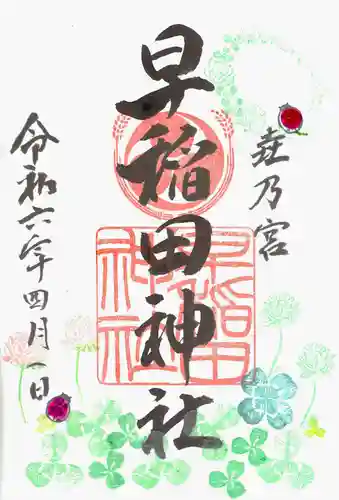 壵乃宮
早稲田神社
令和六年四月一日
早稲田
神社